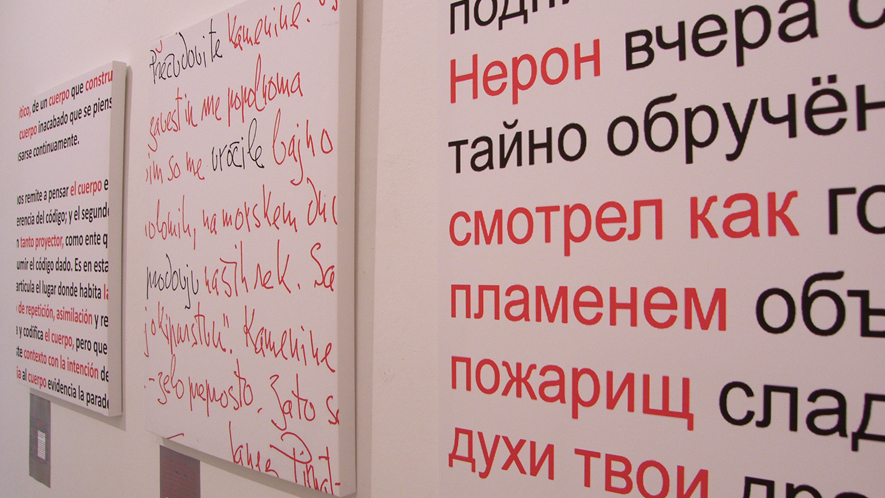 ítico, de un cuerpo que constru
cuerpo inacabado que se piens
sarse continuamente.
nos remite a pensar el cuerpo e
erencia del código; y el segund
n tanto proyector, como ente q
umir el código dado. Es en esta
articula el lugar donde habita la
de repetición, asimilación y re
y codifica el cuerpo, pero que
ste contexto con la intención de
ia al cuerpo evidencia la parado
Kamenine.
zavestin me popolnoma
im so me uročile bajno
na morskem
prodovju naših rek. Sa
Kamenine
zelo preprosto. Zato se
подпи
Нерон вчера с
тайно обручён
смотрел как го
пламенем объ
пожарищ слад
духи твои дра